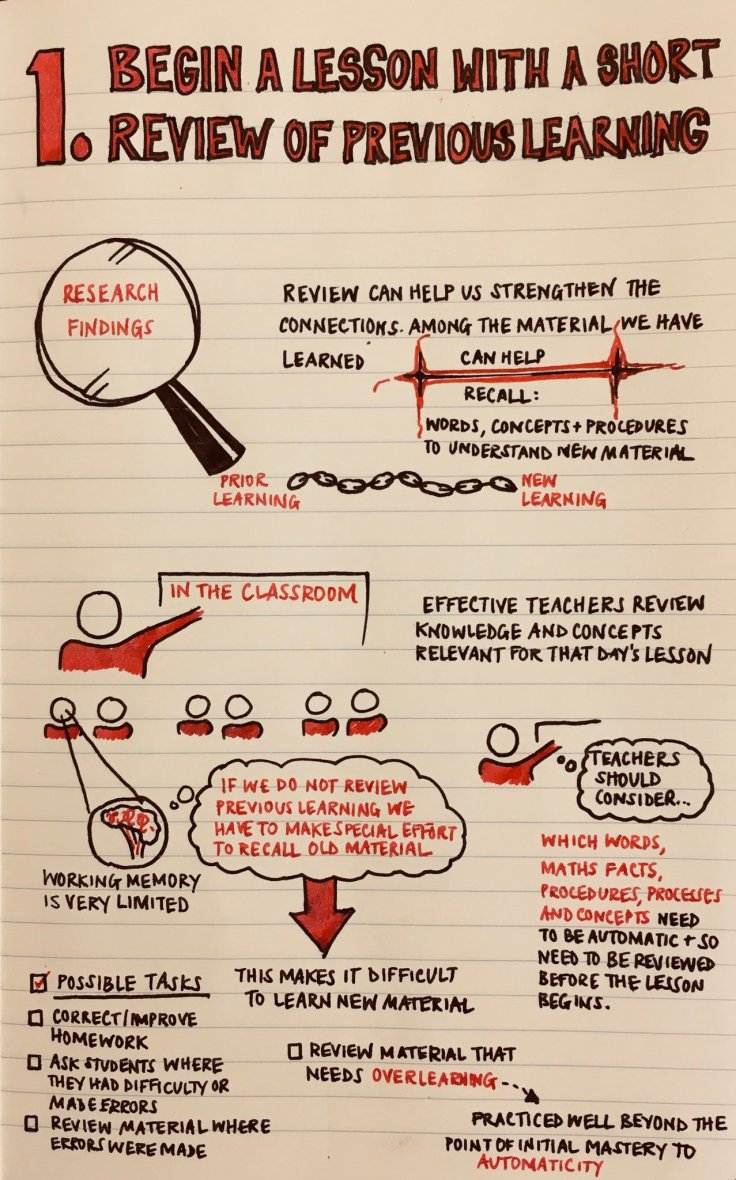 1. BEGIN A LESSON WITH A SHORT
REVIEW OF PREVIOUS LEARNING
RESEARCH
FINDINGS
REVIEW CAN HELP US STRENGTHEN THE
CONNECTIONS. AMONG THE MATERIAL WE HAVE
LEARNED
CAN HELP
RECALL:
WORDS, CONCEPTS + PROCEDURES
TO UNDERSTAND NEW MATERIAL
PRIOR
LEARNING
NEW
LEARNING
IN THE CLASSROOM
EFFECTIVE TEACHERS REVIEW
KNOWLEDGE AND CONCEPTS
RELEVANT FOR THAT DAY'S LESSON
IF WE DO NOT REVIEW
PREVIOUS LEARNING WE
HAVE TO MAKE SPECIAL EFFORT
TO RECALL OLD MATERIAL
WORKING MEMORY
IS VERY LIMITED
THIS MAKES IT DIFFICULT
TO LEARN NEW MATERIAL
TEACHERS
SHOULD
CONSIDER...
WHICH WORDS,
MATHS FACTS,
PROCEDURES, PROCESSES
AND CONCEPTS NEED
TO BE AUTOMATIC + SO
NEED TO BE REVIEWED
BEFORE THE LESSON
BEGINS.
POSSIBLE TASKS
CORRECT/IMPROVE
HOMEWORK
ASK STUDENTS WHERE
THEY HAD DIFFICULTY OR
MADE ERRORS
REVIEW MATERIAL WHERE
ERRORS WERE MADE
REVIEW MATERIAL THAT
NEEDS OVERLEARNING
PRACTICED WELL BEYOND THE
POINT OF INITIAL MASTERY TO
AUTOMATICITY